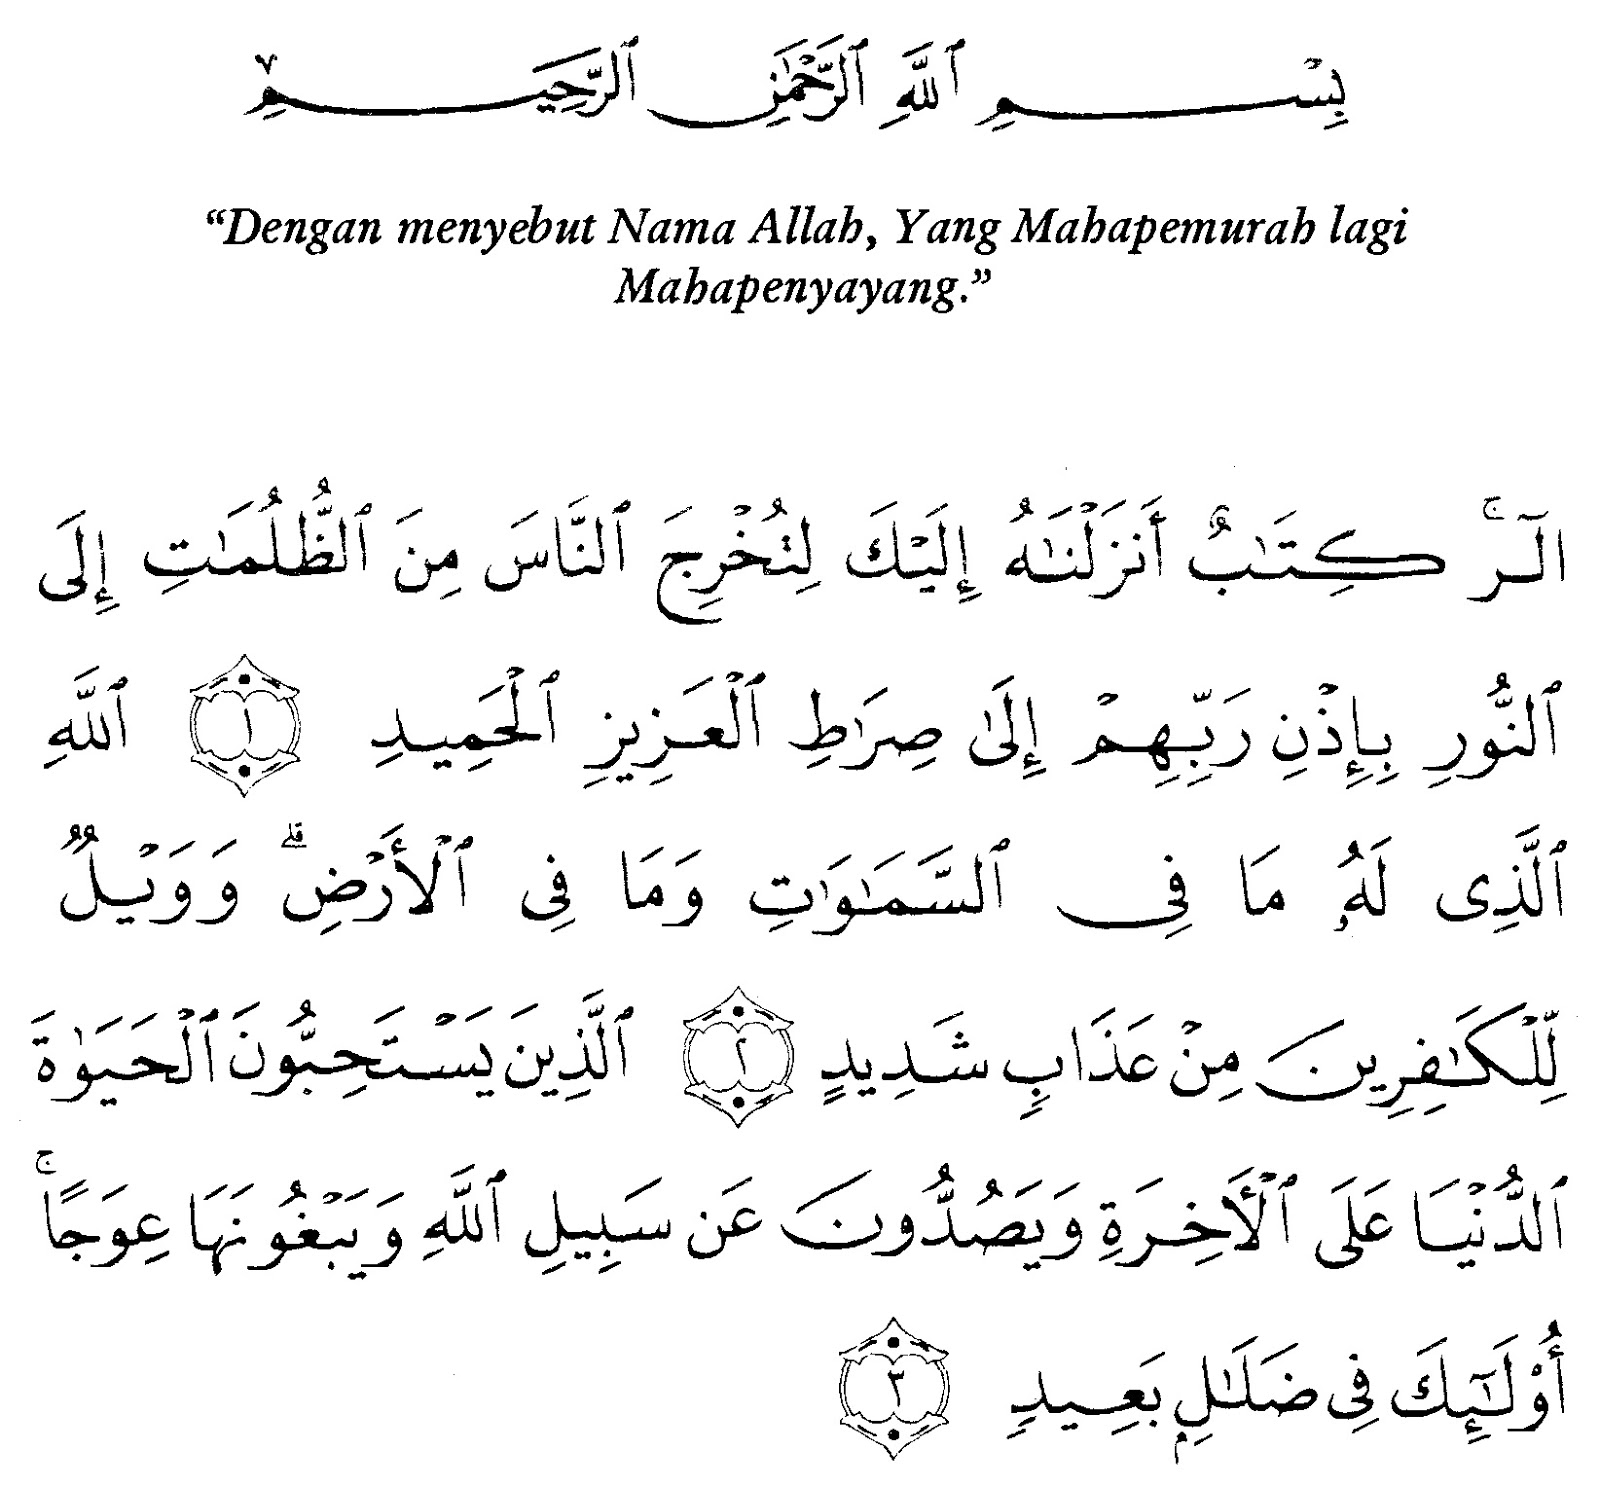 بِسْمِ ٱللَّهِ ٱلرَّحْمَٰنِ ٱلرَّحِيمِ
“Dengan menyebut Nama Allah, Yang Mahapemurah lagi
Mahapenyayang.”
الٓرۚ كِتَٰبٌ أَنزَلْنَٰهُ إِلَيْكَ لِتُخْرِجَ ٱلنَّاسَ مِنَ ٱلظُّلُمَٰتِ إِلَى
ٱلنُّورِ بِإِذْنِ رَبِّهِمْ إِلَىٰ صِرَٰطِ ٱلْعَزِيزِ ٱلْحَمِيدِ ١ ٱللَّهِ
ٱلَّذِى لَهُۥ مَا فِى ٱلسَّمَٰوَٰتِ وَمَا فِى ٱلْأَرْضِۗ وَوَيْلٌ
لِّلْكَٰفِرِينَ مِنْ عَذَابٍ شَدِيدٍ ٢ ٱلَّذِينَ يَسْتَحِبُّونَ ٱلْحَيَوٰةَ
ٱلدُّنْيَا عَلَى ٱلْأَخِرَةِ وَيَصُدُّونَ عَن سَبِيلِ ٱللَّهِ وَيَبْغُونَهَا عِوَجًاۚ
أُوْلَٰٓئِكَ فِى ضَلَٰلٍۭ بَعِيدٍ ٣